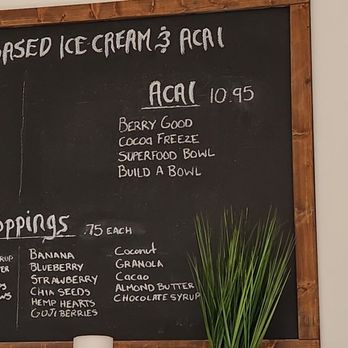 ASED ICE CREAM & ACAI
ACAI 10.95
BERRY GOOD
COCOA FREEZE
SUPERFOOD BOWL
BUILD A BOWL
OPPINGS .75 EACH
BANANA
BLUEBERRY
STRAWBERRY
CHIA SEEDS
HEMP HEARTS
GOJI BERRIES
COCONUT
GRANOLA
CACAO
ALMOND BUTTER
CHOCOLATE SYRUP